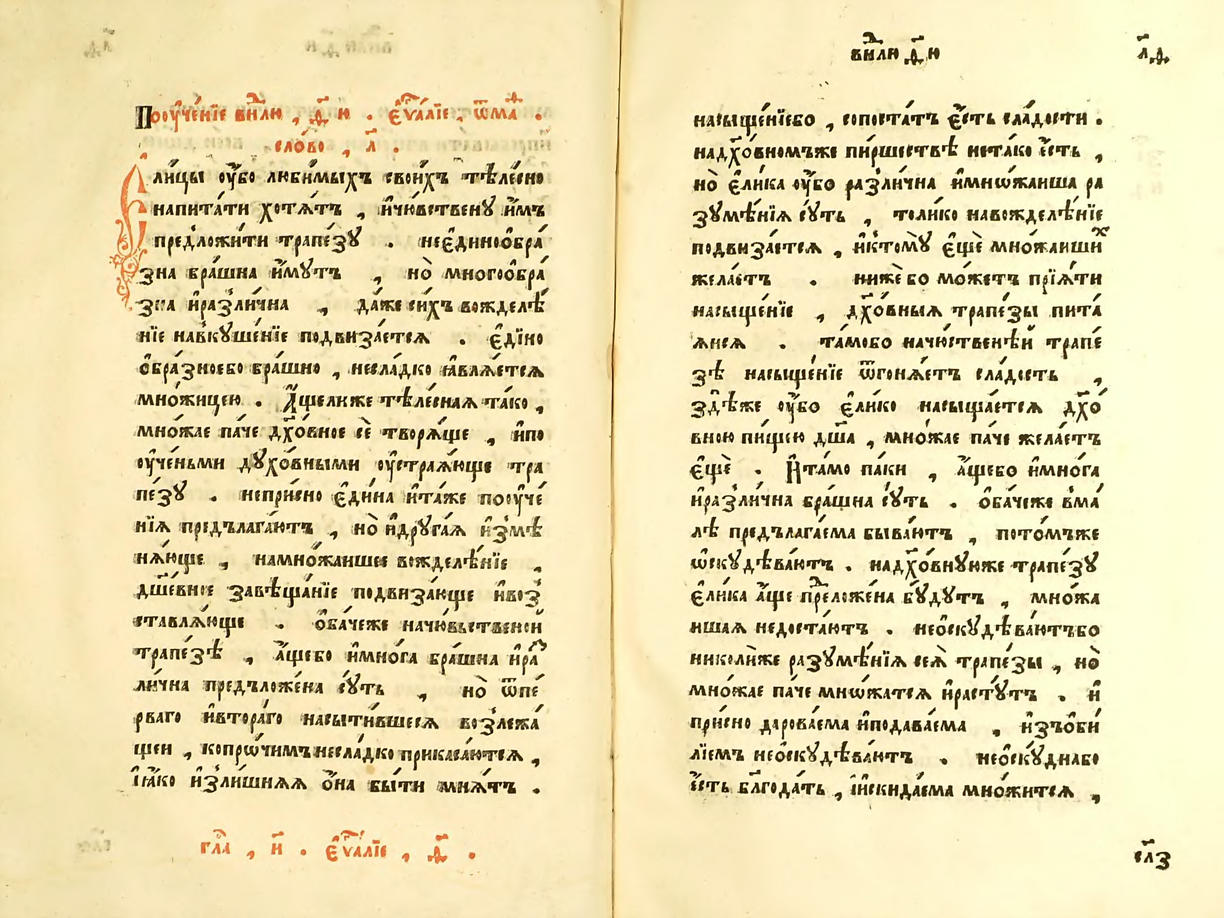 Поѹче́нїе внлю , д҃ ю . є҆ѵⷢ҇а́лїе , ѿ маⷴ .
сло́во , л҃ .
Е҆лицы ѹ҆́бо люби́мыхъ свои́хъ тѣле́сно
напита́ти хотѧ́тъ , и҆чю́вственꙋ и҆́мъ
предложи́ти трапе́зꙋ . неє҆динноѻ҆бра́
зна бра́шна и҆́мꙋтъ , но̀ многоѻ҆бра́
зна и҆разли́чна , да́же си́хъ вожделѣ́
нїе навкꙋше́нїе подвиза́етсѧ . є҆ди́но
ѻ҆бра́зноебо бра́шно , несла́дко ꙗ҆влѧ́етсѧ
мно́жицею . А҆́щелиже тѣле́снаѧ та́ко ,
мно́жае па́че дх҃о́вное сѐ творѧ́ще , и҆по
ѹче́ньми дꙋхо́вными ѹ҆страѧ́юще тра
пе́зꙋ . непри́сно є҆ди́на и҆та́же поѹче́
нїѧ предълага́ютъ , но̀ и҆дрꙋга́ѧ и҆змѣ
нѧ́юще , намно́жаишее вожделѣ́нїе ,
дш҃е́вное завѣща́нїе подвиза́юще и҆воз
ставлѧ́юще . ѻ҆ба́чеже начю́вьственой
трапе́зѣ , а҆́щебо и҆мно́га бра́шна и҆раⷥ
ли́чна предъложе́на сꙋ́ть , но̀ ѿпе́
рваго и҆втора́го насыти́вшесѧ возлежа́
щеи , копрѡ́чимъ несла́дко прикаса́ютсѧ ,
ꙗ҆́ко и҆зли́шнѧѧ ѻ҆́на бы́ти мнѧ́тъ .
гла̀ , и҃ . є҆ѵⷢ҇а́лїе , д҃ .
внлю д҃ ю
л҃д
насыще́нїебо , сопоста́тъ є҆́сть сла́дости .
надх҃о́вномъже пи́ршествѣ нета́ко є҆́сть ,
но̀ є҆ли́ка ѹ҆́бо разли́чна и҆мнѡ́жаиша ра
зꙋмѣ́нїѧ сꙋ́ть , толи́ко навожделѣ́нїе
подвиза́етсѧ , и҆ктомꙋ̀ є҆щѐ мно́жаишиⷯ
жела́етъ . ниже́ бо мо́жетъ прїѧ́ти
насыще́нїе , дх҃о́вныѧ трапе́зы пита́
ѧисѧ . та́мобо начю́ственѣй трапе́
зѣ насыще́нїе ѿгонѧ́етъ сла́дость ,
здѣ́же ѹ҆́бо є҆ли́ко насыща́етсѧ дх҃о́
вною пи́щею дш҃а̀ , мно́жае па́че жела́етъ
є҆щѐ . И҆та́мо па́ки , а҆́щебо и҆мно́га
и҆разли́чна бра́шна сꙋ́ть . ѻ҆ба́чеже вма́
лѣ предълага́ема быва́ютъ , пото́мъже
ѡ҆скꙋдѣва́ютъ . надх҃о́внꙋюже трапе́зꙋ
є҆ли́ка а҆́ще преⷣложе́на бꙋ́дꙋтъ , мно́жа
ишаѧ недоста́ютъ . неѻ҆скꙋдѣва́ютъбо
николи́же разꙋмѣ́нїѧ сеѧ̀ трапе́зы , но̀
мно́жае па́че мнѡ́жатсѧ и҆растꙋ́тъ . и҆
при́сно дарова́ема и҆подава́ема , и҆зъѻ҆би́
лїемъ неѻ҆скꙋдѣва́ютъ . неѻ҆скꙋ́днабо
є҆́сть благода́ть , и҆искида́ема мно́житсѧ ,
сл҃з